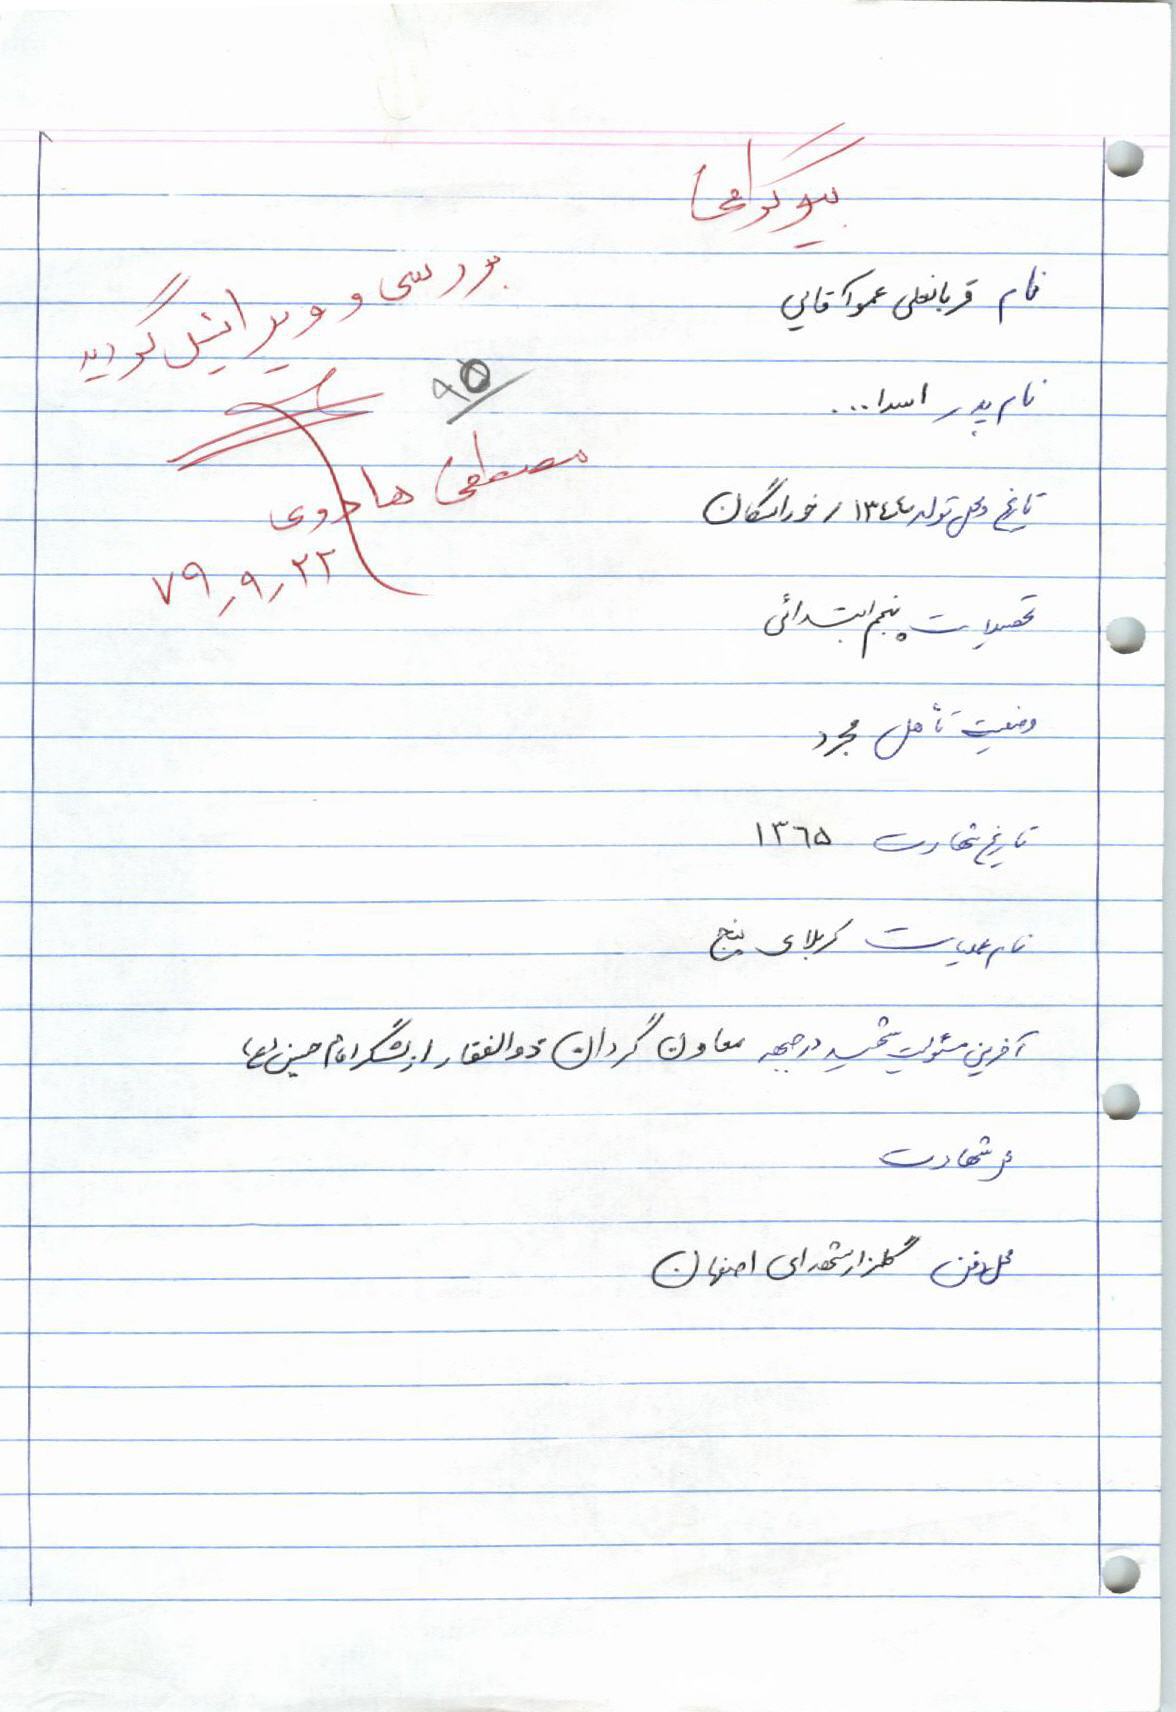 بیوگرافی
نام قربانعلی عموآقایی
نام پدر اسدا...
تاریخ و محل تولد ۱۳۴۴ / خوراسگان
تحصیلات پنجم ابتدائی
وضعیت تأهل مجرد
تاریخ شهادت ۱۳۶۵
نام عملیات کربلای پنج
آخرین مسئولیت شهید در جبهه معاون گردان ذوالفقار از لشکر امام حسین (ع)
محل شهادت
محل دفن گلزار شهدای اصفهان
بررسی و ویرایش گردید
۹۵
مصطفی هادوی
۷۹٫۹٫۲۲